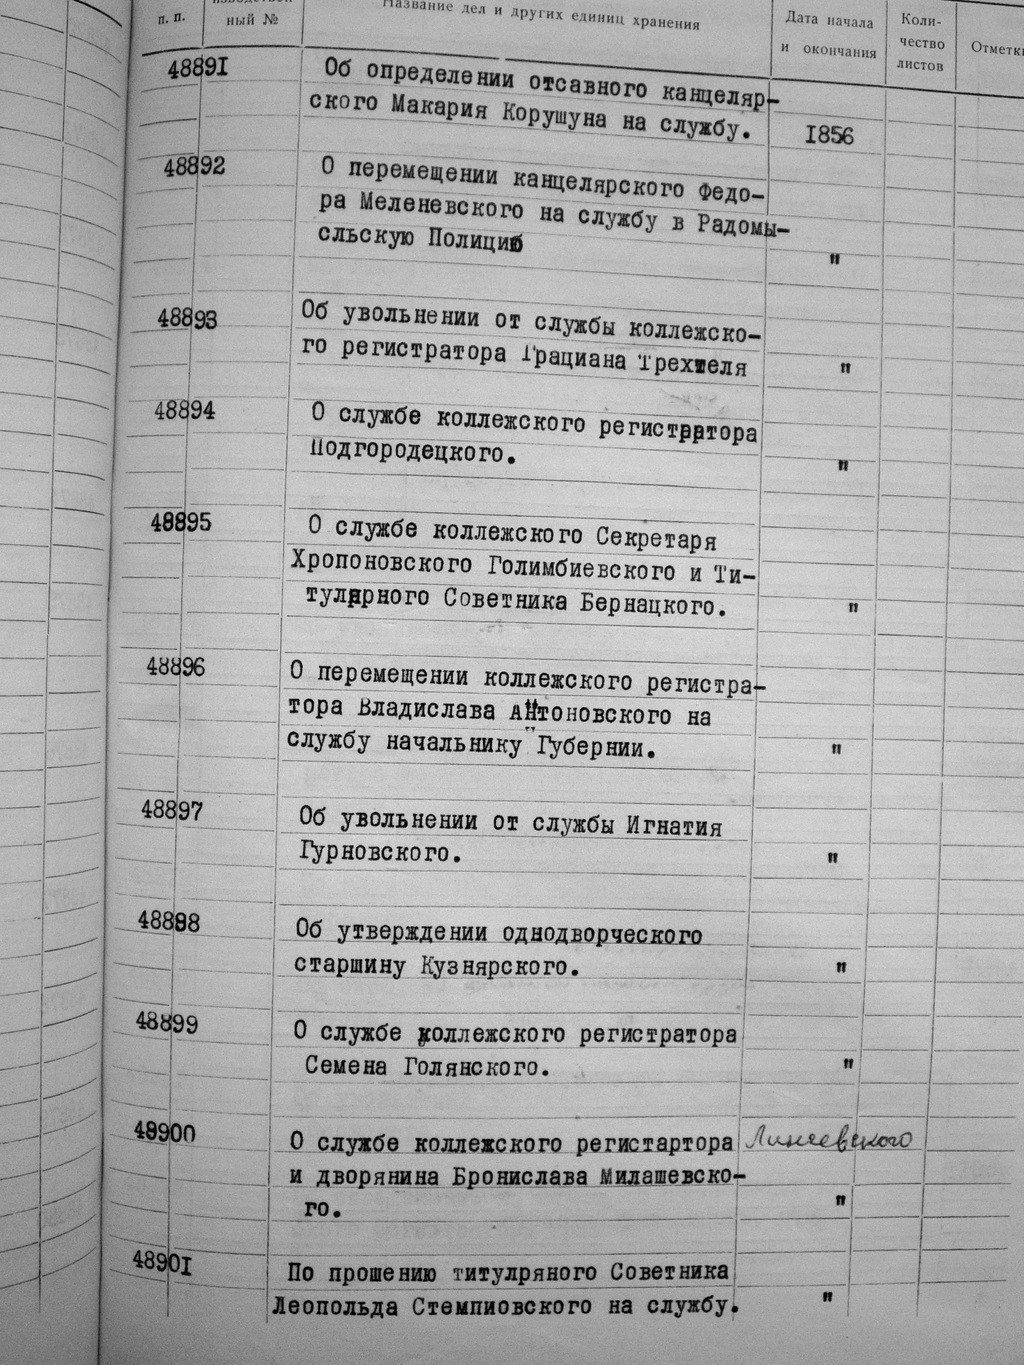 п. п.
ный №
Название дел и других единиц хранения
Дата начала
и окончания
Коли-
чество
листов
Отметки
48891
Об определении отсавного канцеляр-
ского Макария Корушуна на службу.
1856
48892
О перемещении канцелярского Федо-
ра Меленевского на службу в Радомы-
сльскую Полицию
"
48893
Об увольнении от службы коллежско-
го регистратора Грациана Трехтеля
"
48894
О службе коллежского регистрртора
Подгородецкого.
"
48895
О службе коллежского Секретаря
Хропоновского Голимбиевского и Ти-
тулярного Советника Бернацкого.
"
48896
О перемещении коллежского регистра-
тора Владислава Антоновского на
службу начальнику Губернии.
"
48897
Об увольнении от службы Игнатия
Гурновского.
"
48898
Об утверждении однодворческого
старшину Кузнярского.
"
48899
О службе коллежского регистратора
Семена Голянского.
"
48900
О службе коллежского регистартора Линеевского
и дворянина Бронислава Милашевско-
го.
"
48901
По прошению титулряного Советника
Леопольда Стемпиовского на службу.
"